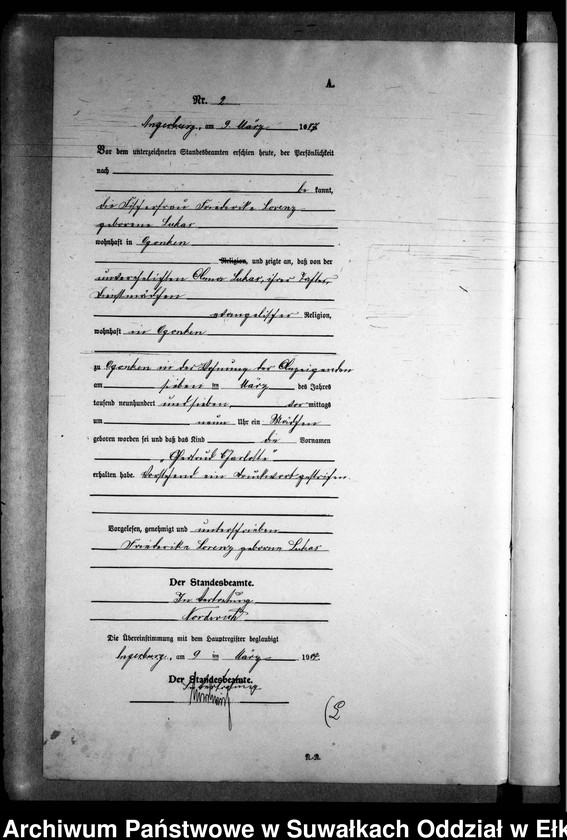 A.
Nr. 2
Angerburg, am 9. März 1907
Vor dem unterzeichneten Standesbeamten erschien heute, der Persönlichkeit
nach
be kannt,
die Fischerfrau Friederike Lorenz
geborene Lukas
wohnhaft in Ogonken
Religion, und zeigte an, daß von der
unverehelichten Lukas, ihrer Tochter,
Dienstmädchen
evangelischer Religion,
wohnhaft in Ogonken
zu Ogonken in der Wohnung der Anzeigenden
am sieben im März des Jahres
tausend neunhundert und sieben vor mittags
um neun Uhr ein Mädchen
geboren worden sei und daß das Kind die Vornamen
„Gertrud Charlotte“
erhalten habe. Vorstehend ein Druckwort gestrichen.
Vorgelesen, genehmigt und unterschrieben
Friederike Lorenz geborne Lukas
Der Standesbeamte.
In Vertretung
Die Übereinstimmung mit dem Hauptregister beglaubigt
Angerburg, am 9 im März 1907.
Der Standesbeamte.
In Vertretung
Archiwum Państwowe w Suwałkach Oddział w Ełk